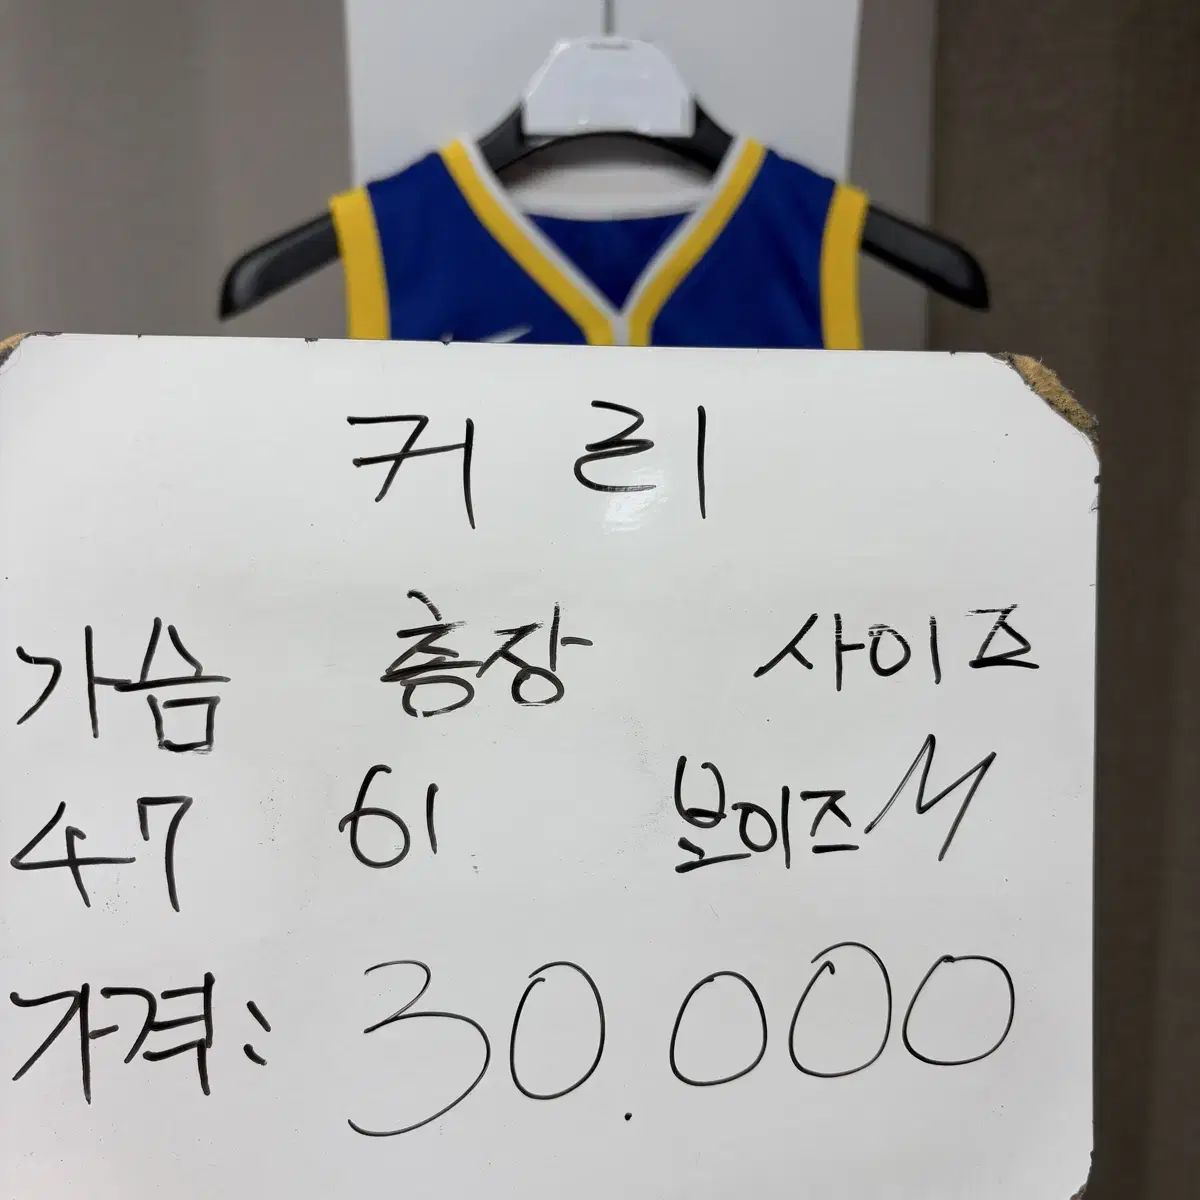 커리
가슴 총장 사이즈
47 61 보이즈M
가격: 30.000